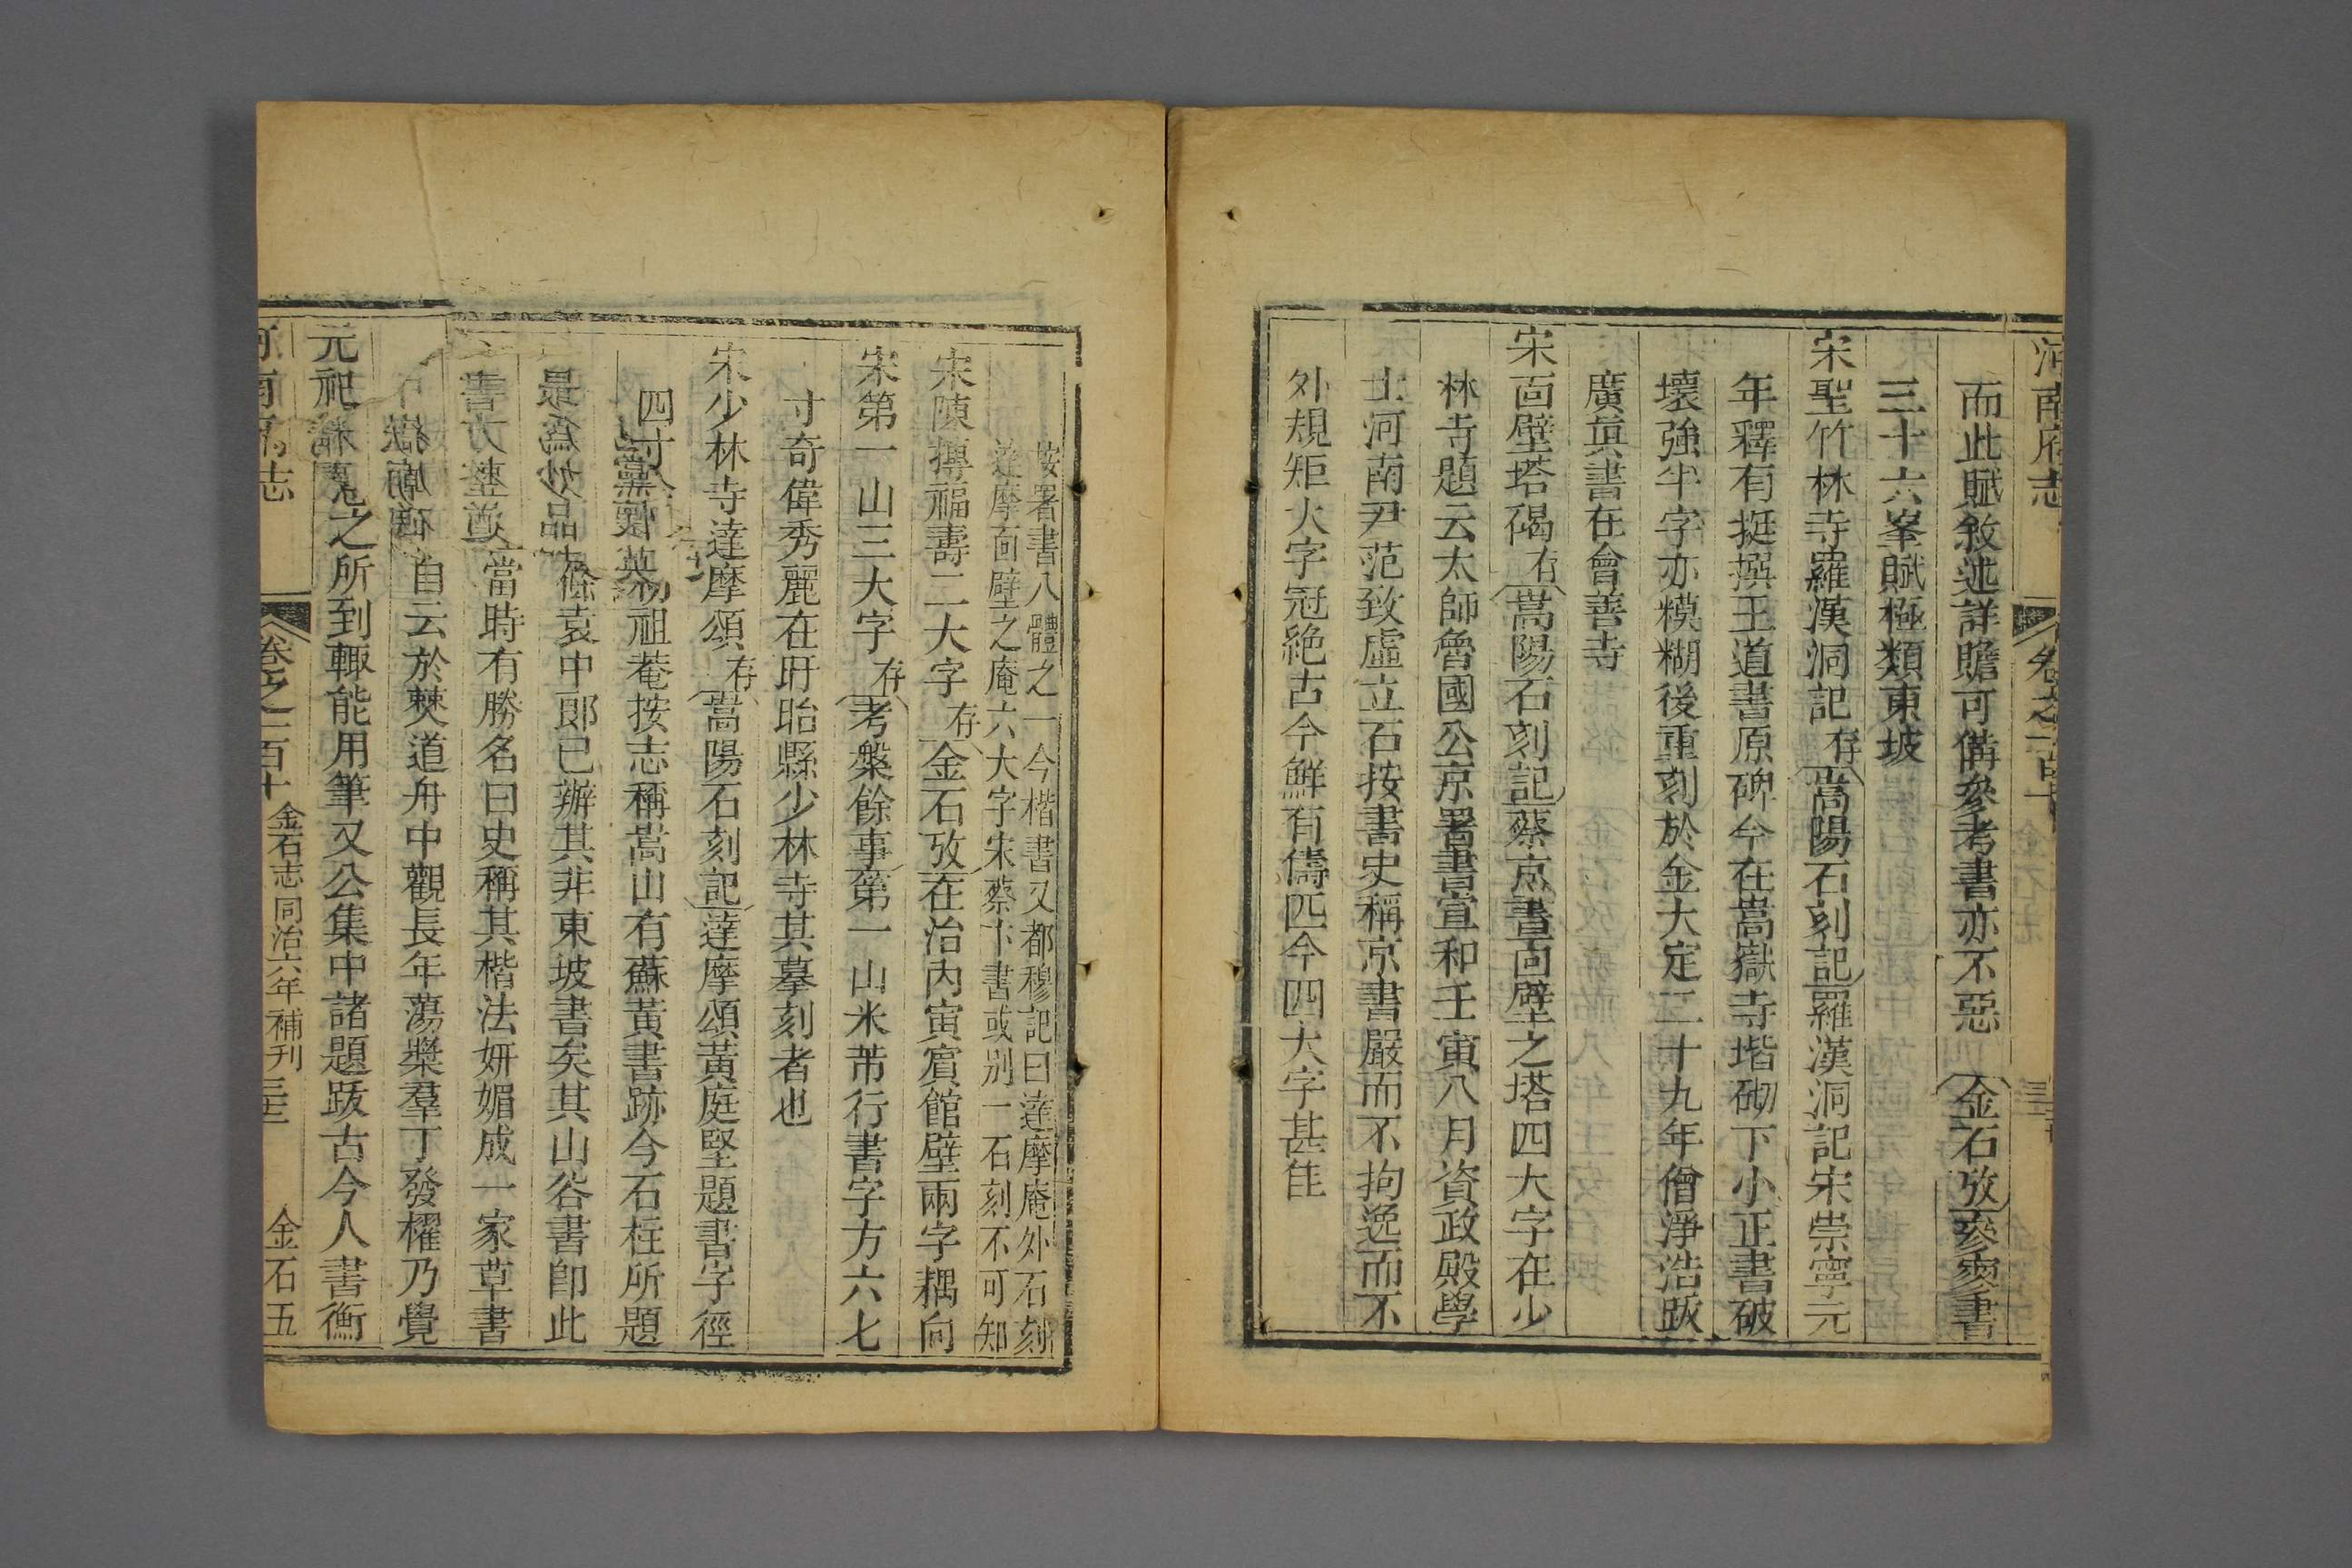 河南府志
卷之一百十
而此賦敘述詳贍可備參考書亦不惡 金石攷參寥書
三十六峯賦極類東坡
宋聖竹林寺羅漢洞記存嵩陽石刻記羅漢洞記宋崇寧元
年釋有挺撰王道書原碑今在嵩嶽寺堦砌下小正書破
壞強半字亦糢糊後重刻於金大定二十九年僧淨浩跋
廣真書在會善寺
宋面壁塔碣存嵩陽石刻記蔡京書面壁之塔四大字在少
林寺題云太師魯國公京署書宣和壬寅八月資政殿學
士河南尹范致虛立石按書史稱京書嚴而不拘逸而不
外規矩大字冠絕古今鮮有儔匹今四大字甚佳
按署書八體之一今楷書又都穆記曰達摩庵外石刻
達摩面壁之庵六大字宋蔡卞書或別一石刻不可知
宋陳摶福壽二大字存金石攷在治內寅賓館壁兩字耦向
宋第一山三大字存考槃餘事第一山米芾行書字方六七
寸奇偉秀麗在盱眙縣少林寺其摹刻者也
宋少林寺達摩頌存嵩陽石刻記達摩頌黃庭堅題書字徑
四寸初祖菴按志稱嵩山有蘇黃書跡今石柱所題
袁中郞已辦其非東坡書矣其山谷書卽此
當時有勝名曰史稱其楷法妍媚成一家草書
自云於僰道舟中觀長年蕩槳羣丁發櫂乃覺
之所到輙能用筆又公集中諸題跋古今人書衡
河南府志
卷之一百十 金石志同治六年補刊 金石五